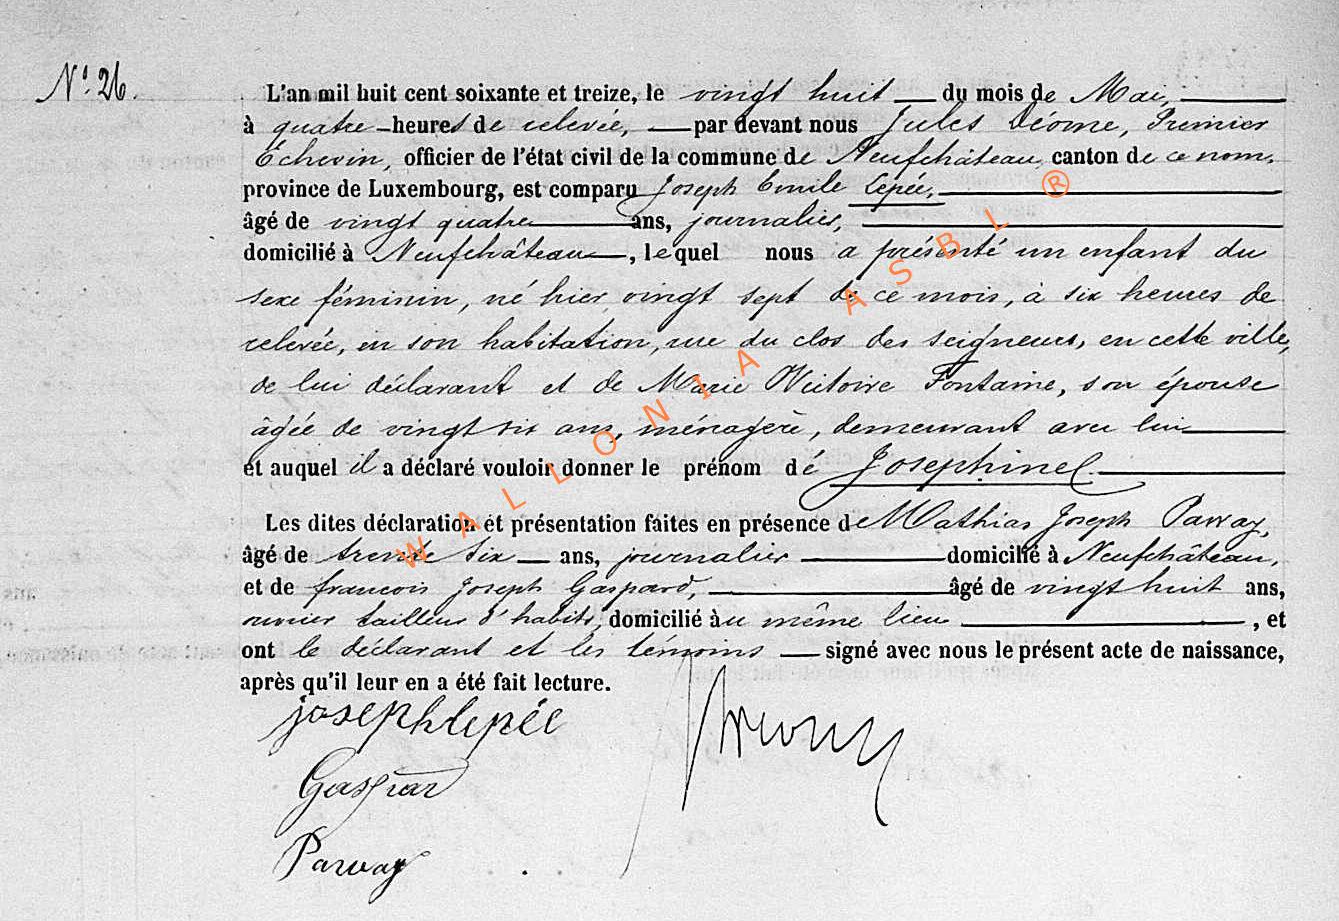 N° 26.
L'an mil huit cent soixante et treize, le vingt huit du mois de Mai,
à quatre heures de relevée, par devant nous Jules Déome, Premier
Échevin, officier de l'état civil de la commune de Neufchâteau, canton de ce nom,
province de Luxembourg, est comparu Joseph Emile Lepée,
âgé de vingt quatre ans, journalier,
domicilié à Neufchâteau, lequel nous a présenté un enfant du
sexe féminin, né hier, vingt sept de ce mois, à six heures de
relevée, en son habitation, rue du clos des seigneurs, en cette ville,
de lui déclarant et de Marie Victoire Fontaine, son épouse
âgée de vingt six ans, ménagère, demeurant avec lui
et auquel il a déclaré vouloir donner le prénom de Josephine
Les dites déclaration et présentation faites en présence de Mathias Joseph Parvay,
âgé de trente six ans, journalier domicilié à Neufchâteau,
et de françois Joseph Gaspard, âgé de vingt huit ans,
ouvrier tailleur d'habits, domicilié au même lieu, et
ont le déclarant et les témoins signé avec nous le présent acte de naissance,
après qu'il leur en a été fait lecture.
joseph lepée
Gaspar
Parvay
WALLONIA ASBL ®